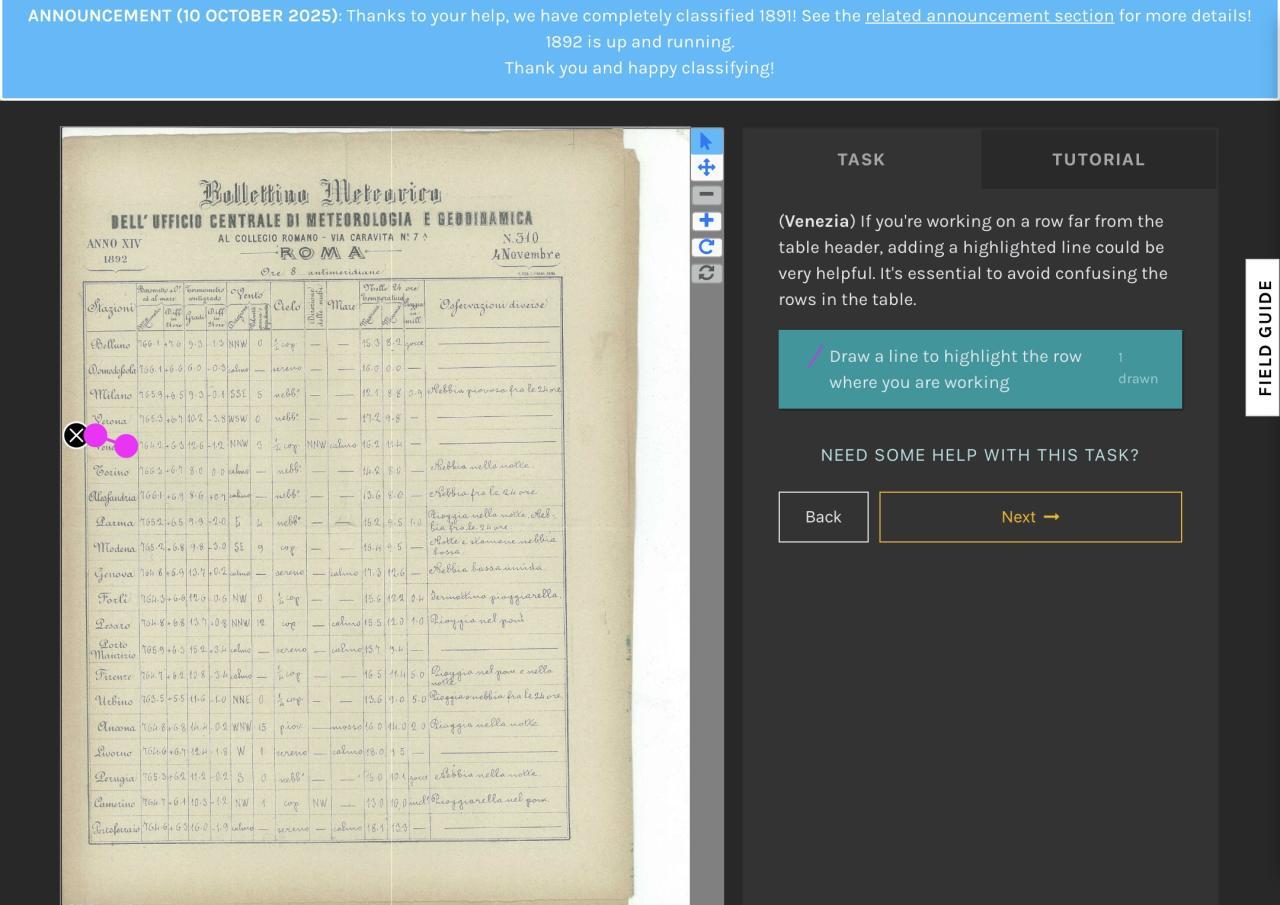 ANNOUNCEMENT (10 OCTOBER 2025): Thanks to your help, we have completely classified 1891! See the related announcement section for more details!
1892 is up and running.
Thank you and happy classifying!
TASK
TUTORIAL
(Venezia) If you're working on a row far from the
table header, adding a highlighted line could be
very helpful. It's essential to avoid confusing the
rows in the table.
Draw a line to highlight the row
where you are working
1
drawn
NEED SOME HELP WITH THIS TASK?
Back
Next
FIELD GUIDE
Bollettino Meteorico
DELL'UFFICIO CENTRALE DI METEOROLOGIA E GEODINAMICA
ANNO XIV
1892
AL COLLEGIO ROMANO - VIA CARAVITA N. 7
ROMA
N. 310
4 Novembre
Ore 8 antimeridiane
Stazioni
Termometro centigrado
Gradi
Vento
Cielo
Mare
Nelle 24 ore
Temperatura
Osservazioni diverse
Belluno 766.1 +7.0 9.3 -1.3 NNW 0 ½ cop — — 15.3 8.2 gocce
Domodossola 766.1 +6.6 6.0 -0.3 calmo — sereno — — 16.0 0.0 —
Milano 765.9 +6.5 9.3 -0.1 SSE 5 nebb° — — 12.1 8.8 0.9 Nebbia piovosa fra le 24 ore
Verona 765.3 +6.7 10.2 -3.8 WSW 0 nebb° — — 17.2 9.8 —
764.2 +6.3 12.6 -1.2 NNW ½ cop NNW calmo 16.2 11.4 —
Torino 766.3 +6.7 8.0 0.0 calmo — nebb° — — 14.2 8.0 — Nebbia nella notte
Alessandria 766.1 +6.9 8.6 +0.7 calmo — nebb° — — 13.6 8.0 — Nebbia fra le 24 ore
Parma 765.2 +6.5 9.9 -2.0 E 4 nebb° — — 15.2 9.5 1.0 Pioggia nella notte. Neb-
bia fra le 24 ore
Modena 765.2 +6.8 9.8 -3.0 SE 9 cop — — 16.4 9.5 — Notte e stamane nebbia
bassa
Genova 764.8 +6.9 13.7 +0.2 calmo — sereno — calmo 17.3 12.6 — Nebbia bassa umida
Forlì 764.3 +6.6 12.0 -0.6 NW 0 cop — — 15.6 12.2 0.4 pioggiarella
Pesaro 764.8 +6.8 13.7 +0.8 NNW 12 cop — calmo 15.5 12.0 1.0 Pioggia nel pom
Porto
Maurizio 765.9 +6.3 15.2 +3.4 calmo — sereno — calmo 9.4 —
Firenze 764.7 +6.2 10.8 -3.4 calmo — ½ cop — — 16.5 11.4 5.0 Pioggia nel pom e nella
notte
Urbino 763.5 +5.5 11.6 -1.0 NNE 0 ¾ cop — — 13.6 9.0 5.0 Pioggia e nebbia fra le 24 ore
Ancona 764.8 +6.8 14.4 -0.2 WNW 15 piov — mosso 16.0 14.0 2.0 Pioggia nella notte
Livorno 764.6 +6.7 12.4 -1.8 W 1 sereno — calmo 18.0 —
Perugia 765.3 +6.2 11.2 -0.2 S 0 nebb° — — 15.0 10.1 gocce Nebbia nella notte
Camerino 764.7 +6.1 10.3 -1.2 NW 1 cop NW — 13.0 Pioggiarella nel pom
Portoferraio 764.6 +6.3 16.0 -1.9 calmo — sereno — calmo 18.1 13.3 —